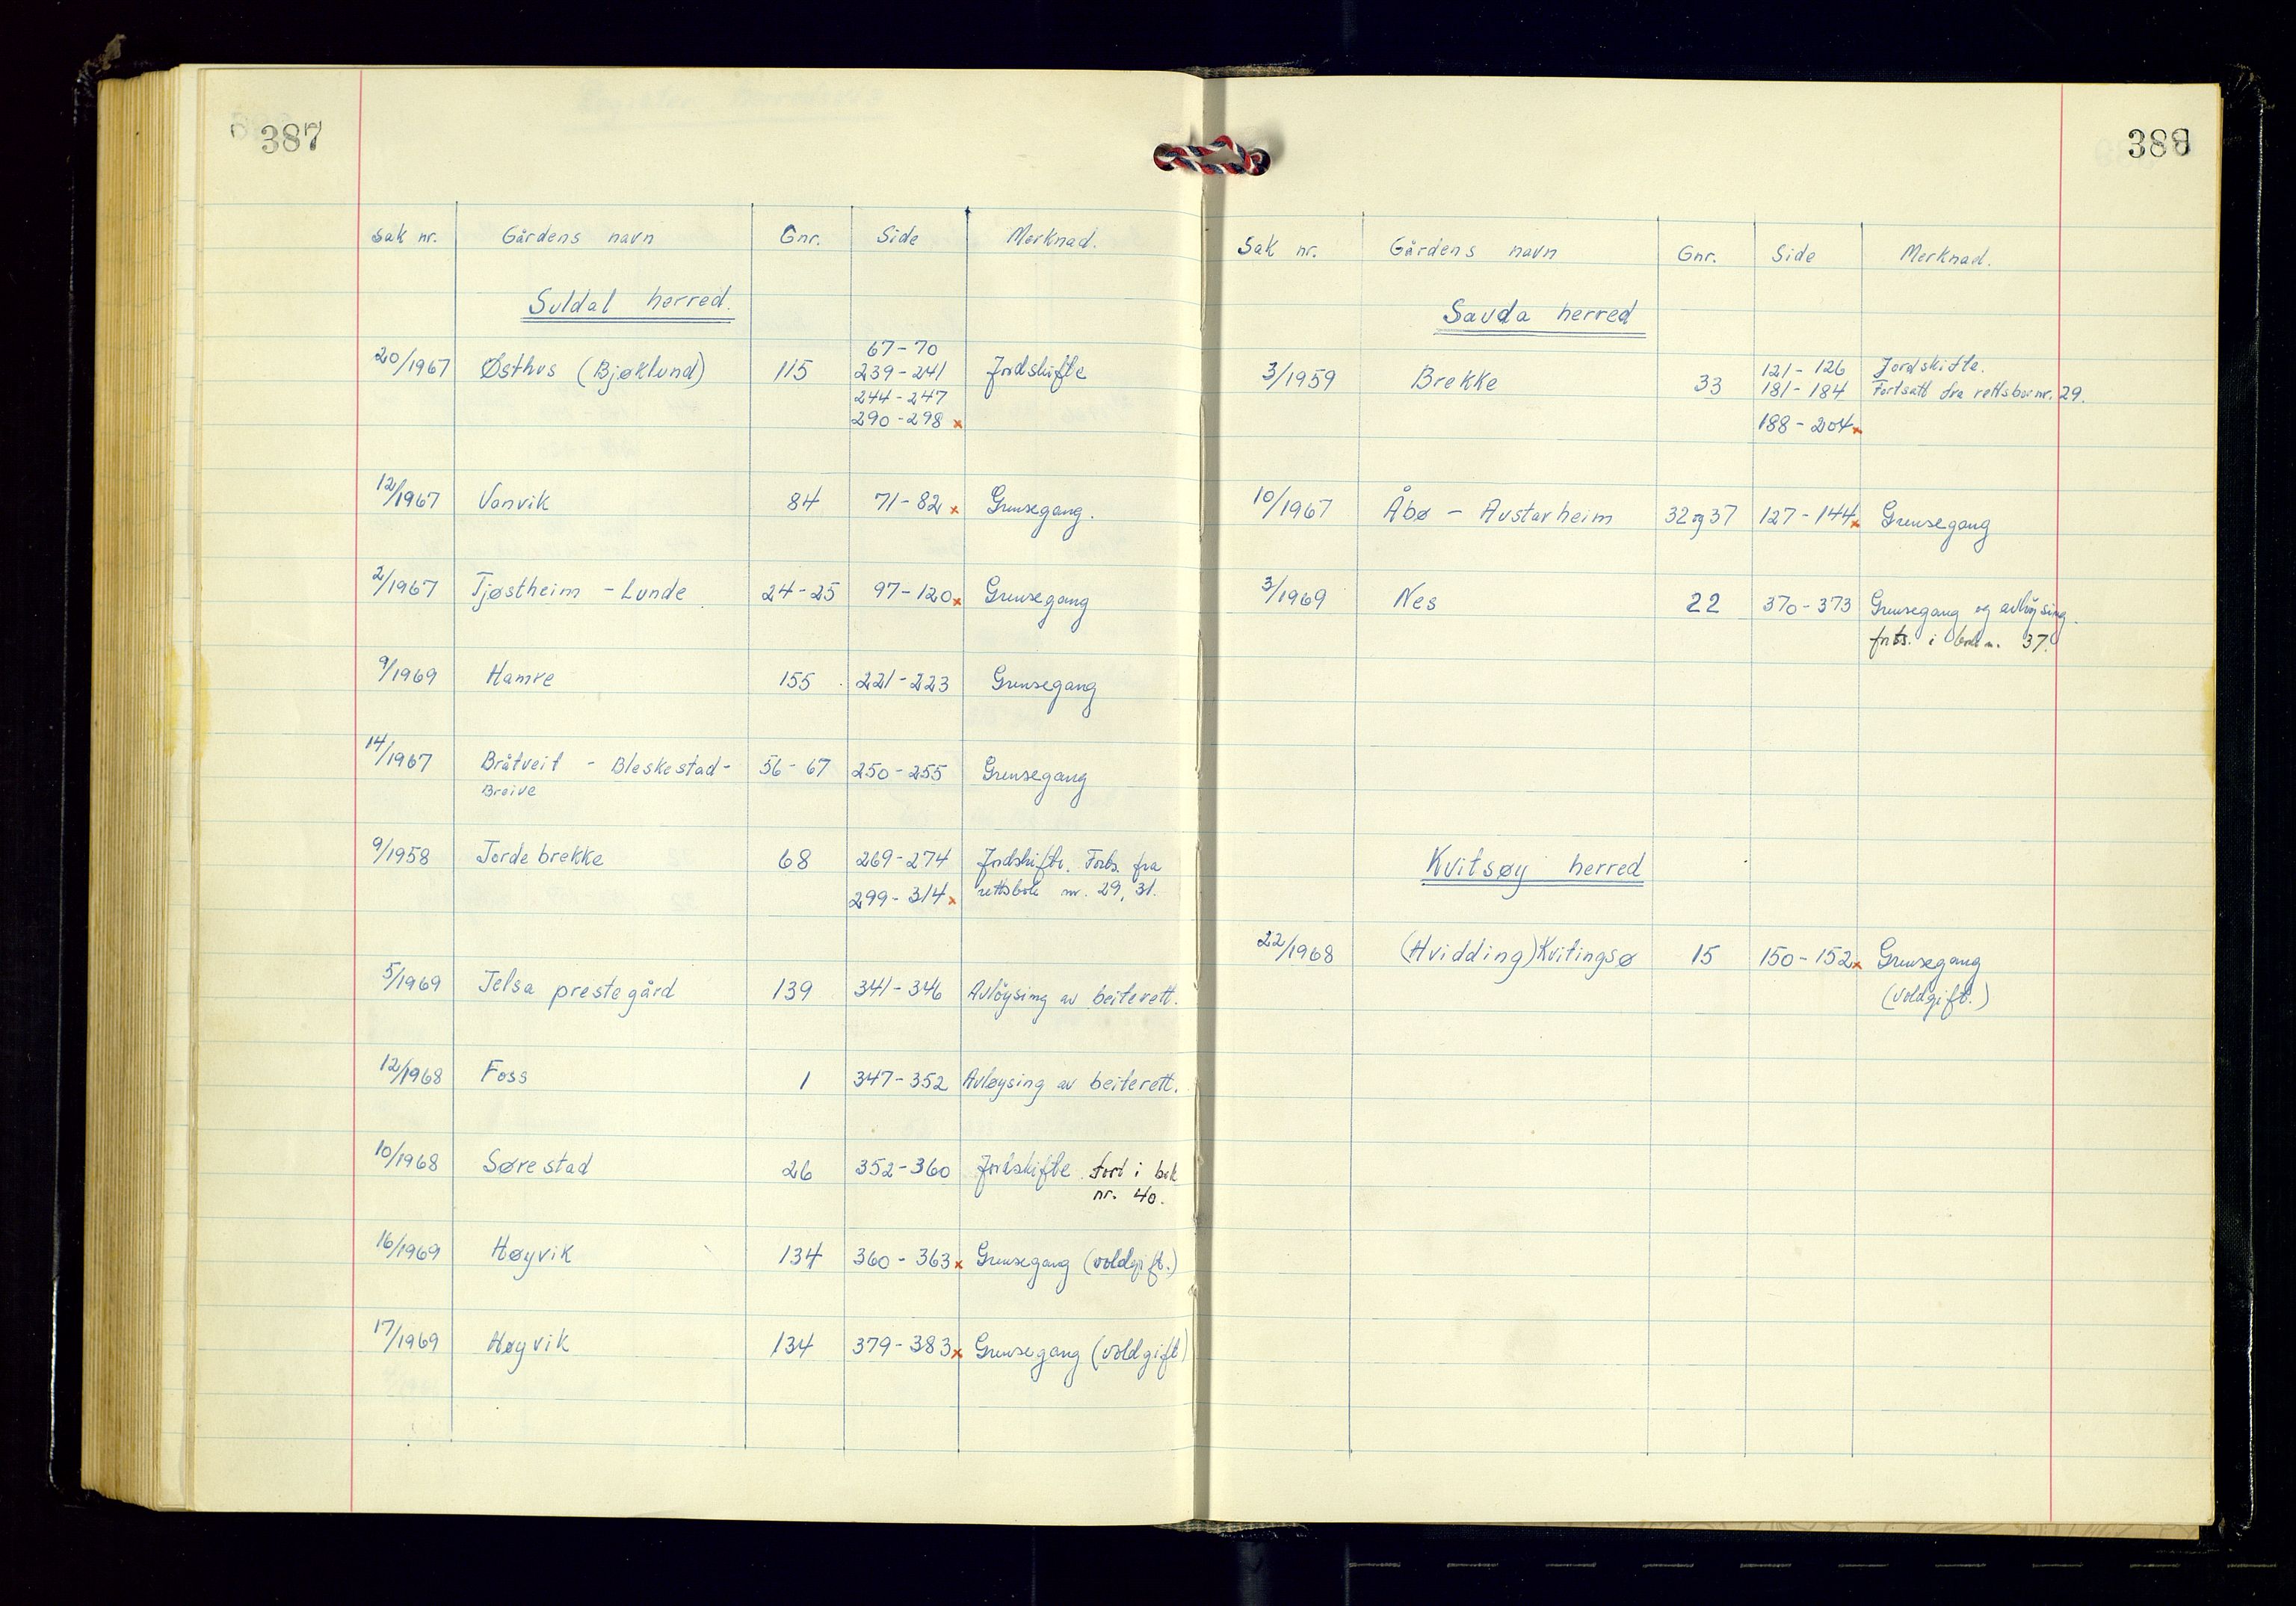 387
Sak nr. Gårdens navn Gnr. Side Merknad.
Suldal herred.
20/1967 Østhus (Bjøklund) 115 67-70 Jordskifte
239-241
244-247
290-298 x
12/1967 Vanvik 84 71-82 x Grensegang.
2/1967 Tjøstheim - Lunde 24-25 97-120 x Grensegang
9/1969 Hamre 155 221-223 Grensegang
14/1967 Bråtveit - Bleskestad- 56-67 250-255 Grensegang
Breive
9/1958 Jordebrekke 68 269-274 Jordskifte. Forts. fra
299-314 x rettsbok nr. 29, 31.
5/1969 Jelsa prestegård 139 341-346 Avløysing av beiterett.
12/1968 Foss 1 347-352 Avløysing av beiterett.
10/1968 Sørestad 26 352-360 Jordskifte. Fort i bok
nr. 40.
16/1969 Høyvik 134 360-363 x Grensegang (voldgift.)
17/1969 Høyvik 134 379-383 x Grensegang (voldgift)
388
Sak nr. Gårdens navn Gnr. Side Merknad.
Sauda herred
3/1959 Brekke 33 121-126 Jordskifte.
181-184 Fortsatt fra rettsbok nr. 29.
188-204 x
10/1967 Åbø - Austarheim 32 og 37 127-144 x Grensegang
3/1969 Nes 22 370-373 Grensegang og avløysing.
forts. i bok n. 37.
Kvitsøy herred
22/1968 (Hvidding) Kvitingsø 15 150-152 x Grensegang
(voldgift.)